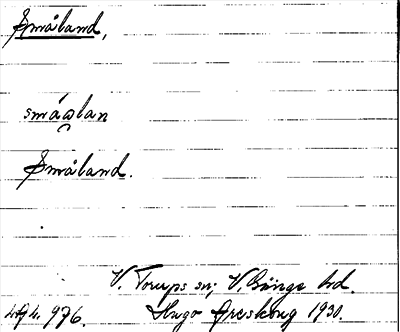 Småland,
småɔlan
Småland.
V. Torups sn; V. Göinge hd.
976. Hugo Areskoug 1930.